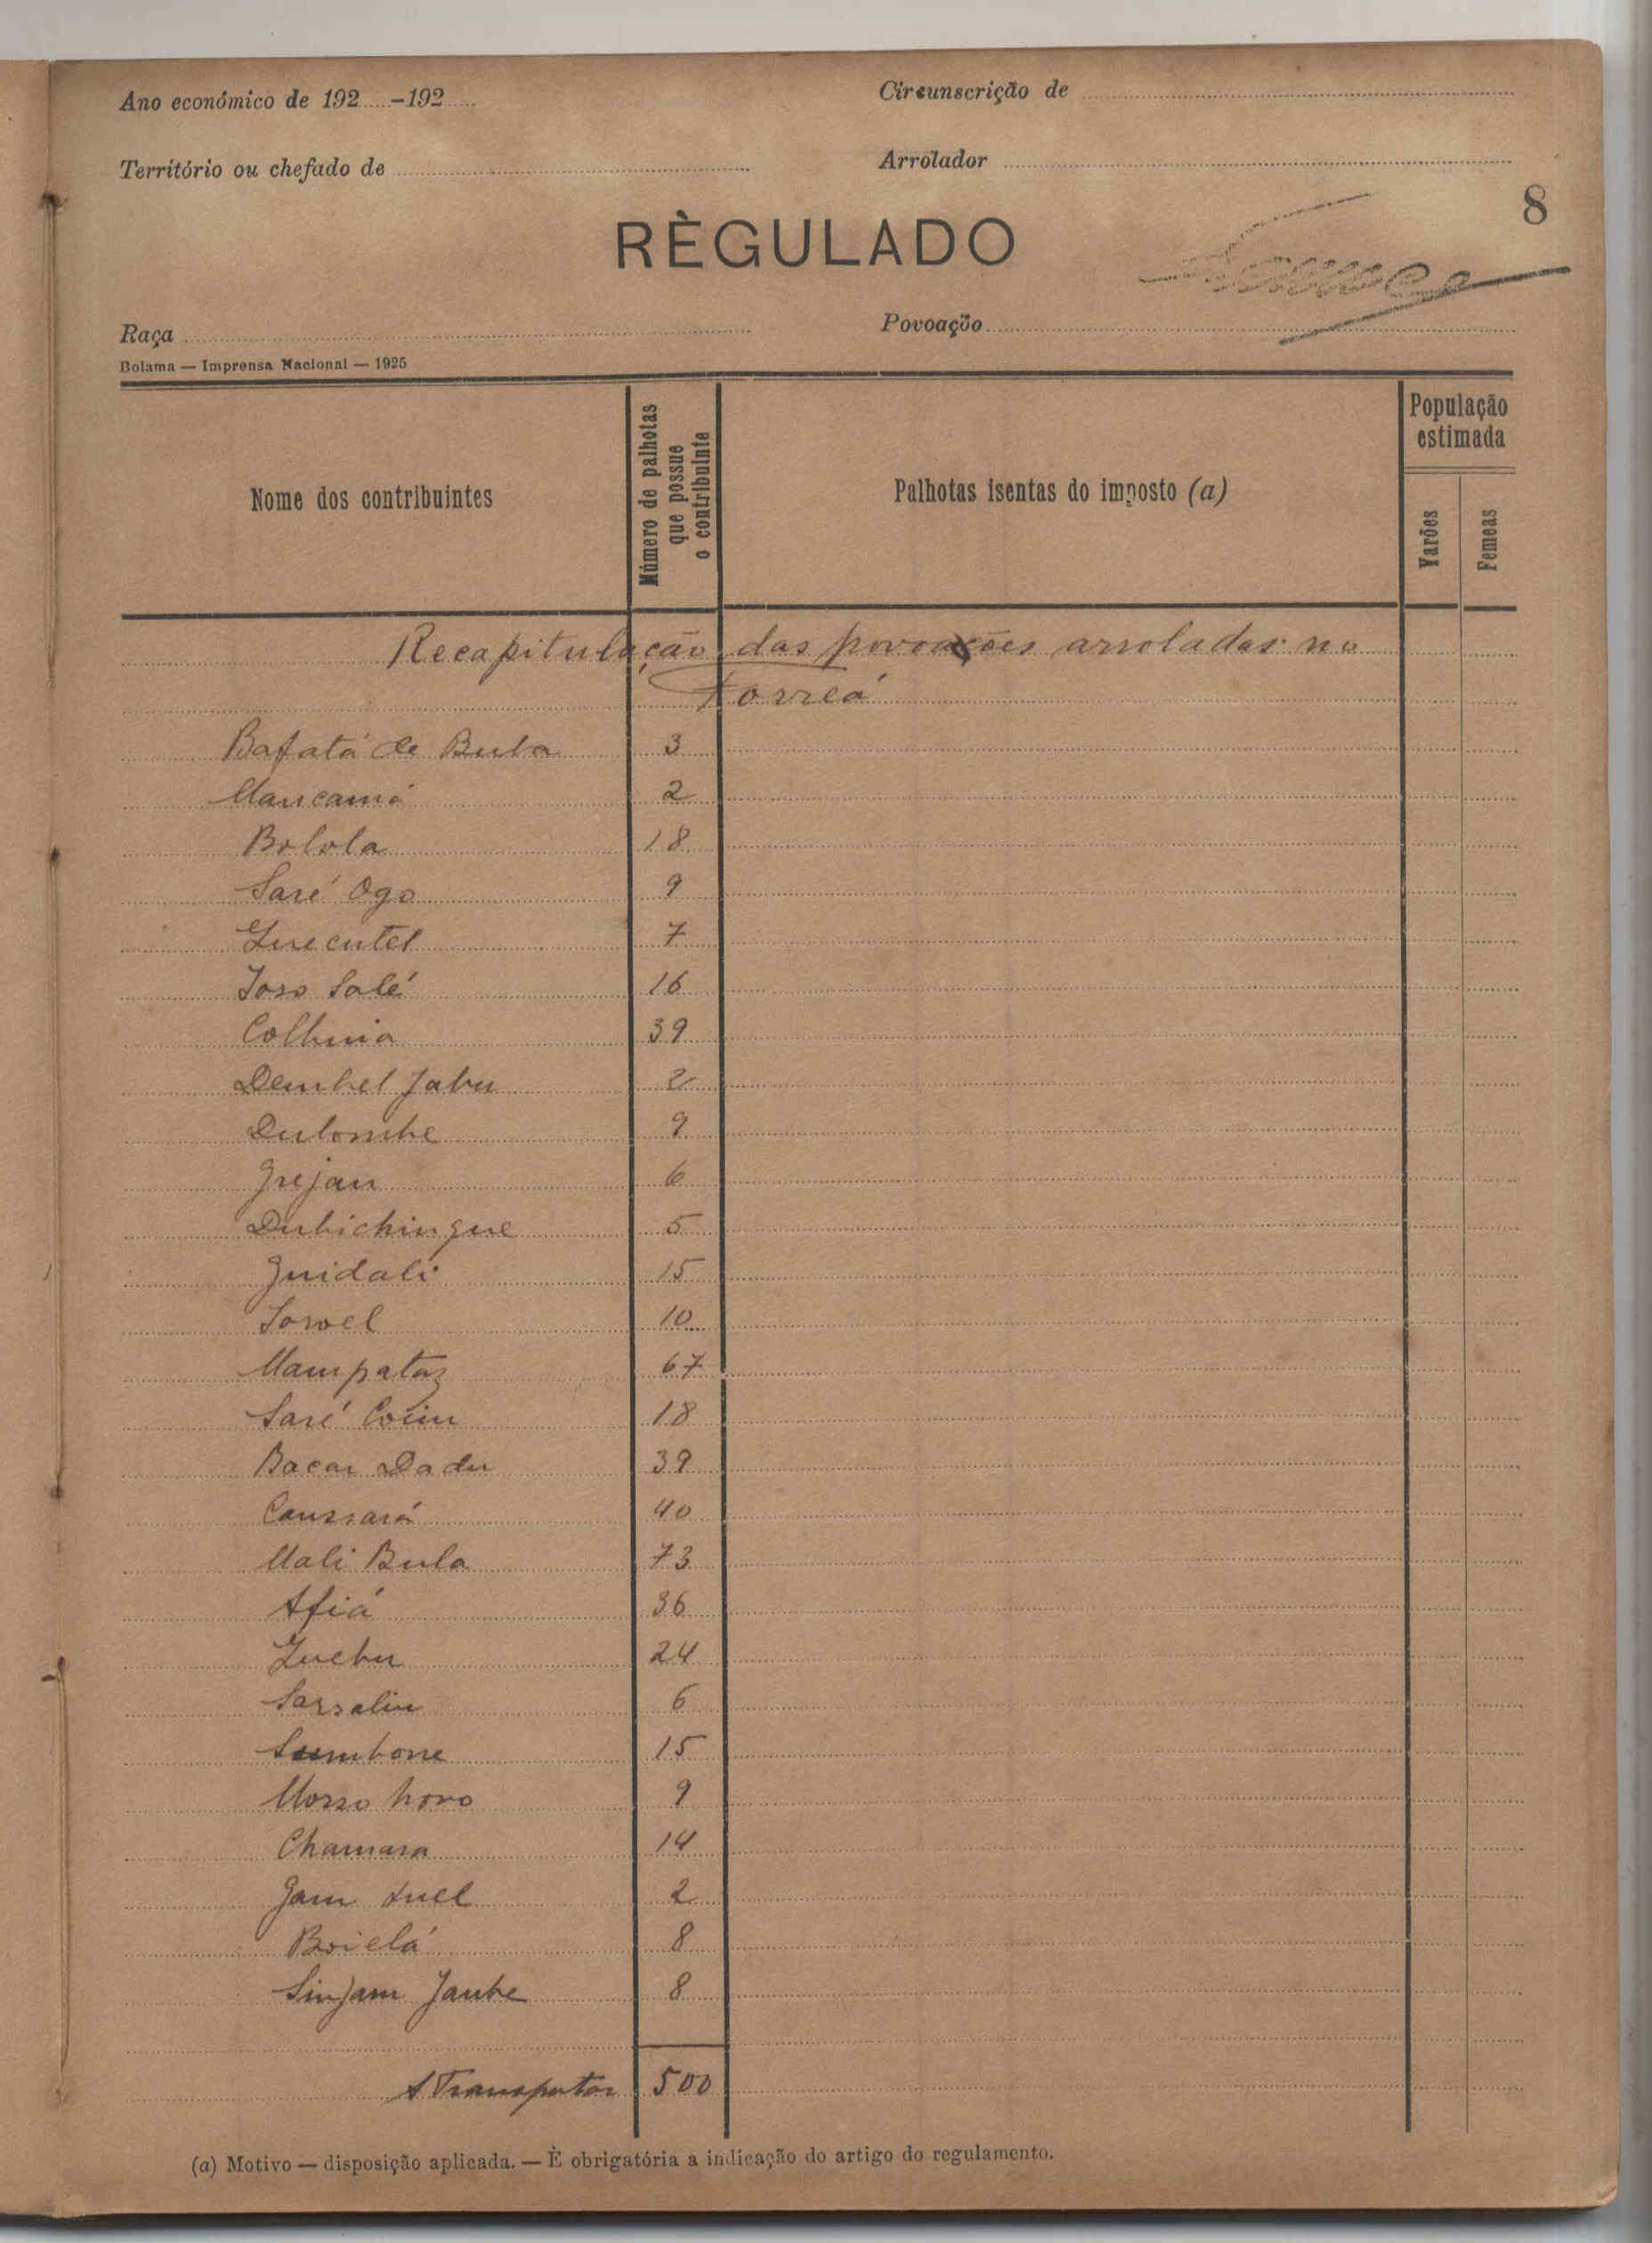 Ano económico de 192.....-192.....
Circunscrição de
Território ou chefado de
Arrolador
8
RÈGULADO
Raça
Povoação
Bolama — Imprensa Nacional — 1925
Nome dos contribuintes
Número de palhotas que possue o contribuinte
Palhotas isentas do imposto (a)
População estimada
Varões
Femeas
Recapitulação das povoações arroladas no
Forreá
Bafatá de Buba 3
Mancamá 2
Bolola 18
Saré Ogo 9
7
16
Colhuia 39
Dembel Jabu 2
Dulombe 9
Grejan 6
Dubichingue 5
Guidali 15
10
Mampataz 67
Saré 18
Bacar Dadu 39
Caussará 40
Mali Bula 73
Afiá 36
24
6
15
9
Chamara 14
2
Boielá 8
8
A Transportar 500
(a) Motivo — disposição aplicada. — È obrigatória a indicação do artigo do regulamento.